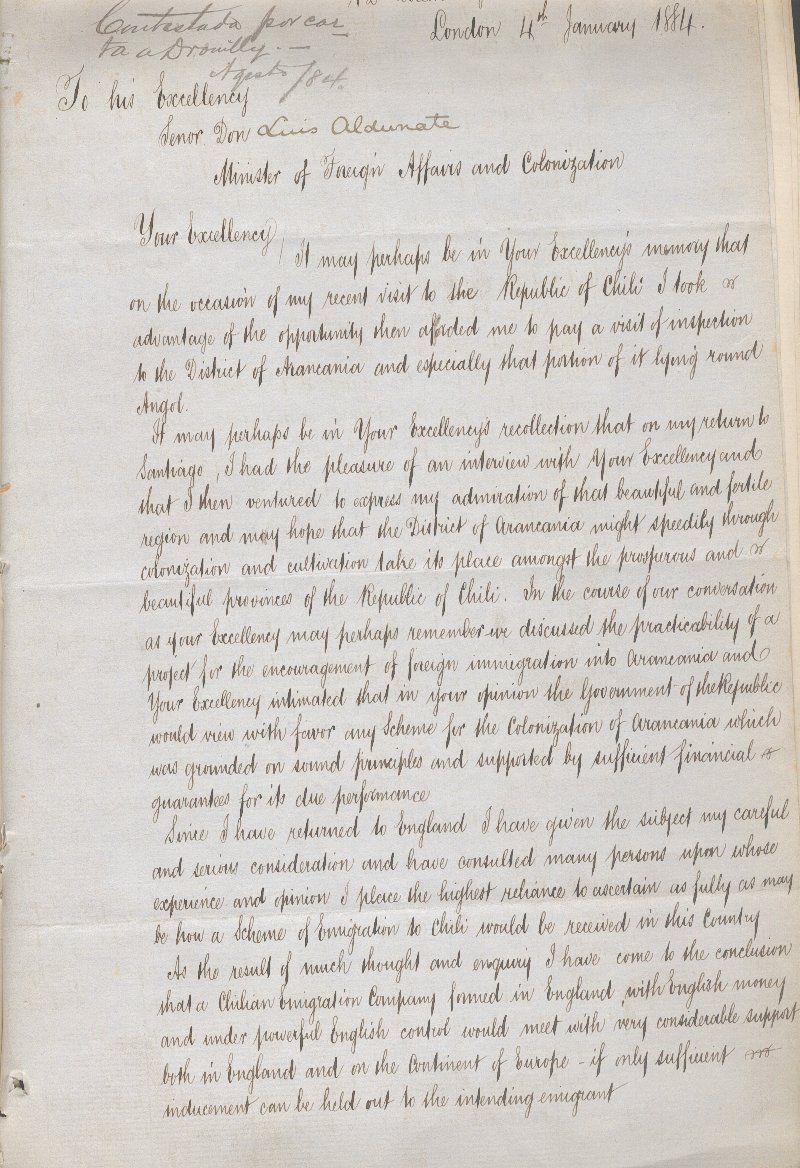 Contestada por car-
ta a Drouilly. —
Agosto /84.
London 4th January 1884.
To his Excellency
Senor Don Luis Aldunate
Minister of Foreign Affairs and Colonization
Your Excellency,
It may perhaps be in Your Excellency's memory that
on the occasion of my recent visit to the Republic of Chili I took
advantage of the opportunity then afforded me to pay a visit of inspection
to the District of Arancania and especially that portion of it lying round
Angol.
It may perhaps be in Your Excellency's recollection that on my return to
Santiago, I had the pleasure of an interview with Your Excellency and
that I then ventured to express my admiration of that beautiful and fertile
region and my hope that the District of Arancania might speedily through
colonization and cultivation take its place amongst the prosperous and
beautiful provinces of the Republic of Chili. In the course of our conversation
as your Excellency may perhaps remember we discussed the practicability of a
project for the encouragement of foreign immigration into Arancania and
Your Excellency intimated that in your opinion the Government of the Republic
would view with favor any Scheme for the Colonization of Arancania which
was grounded on sound principles and supported by sufficient financial
guarantees for its due performance
Since I have returned to England I have given the subject my careful
and serious consideration and have consulted many persons upon whose
experience and opinion I place the highest reliance to ascertain as fully as may
be how a Scheme of Emigration to Chili would be received in this Country
As the result of much thought and enquiry I have come to the conclusion
that a Chilian Emigration Company formed in England, with English money
and under powerful English control would meet with very considerable support
both in England and on the Continent of Europe - if only sufficient
inducement can be held out to the intending emigrant